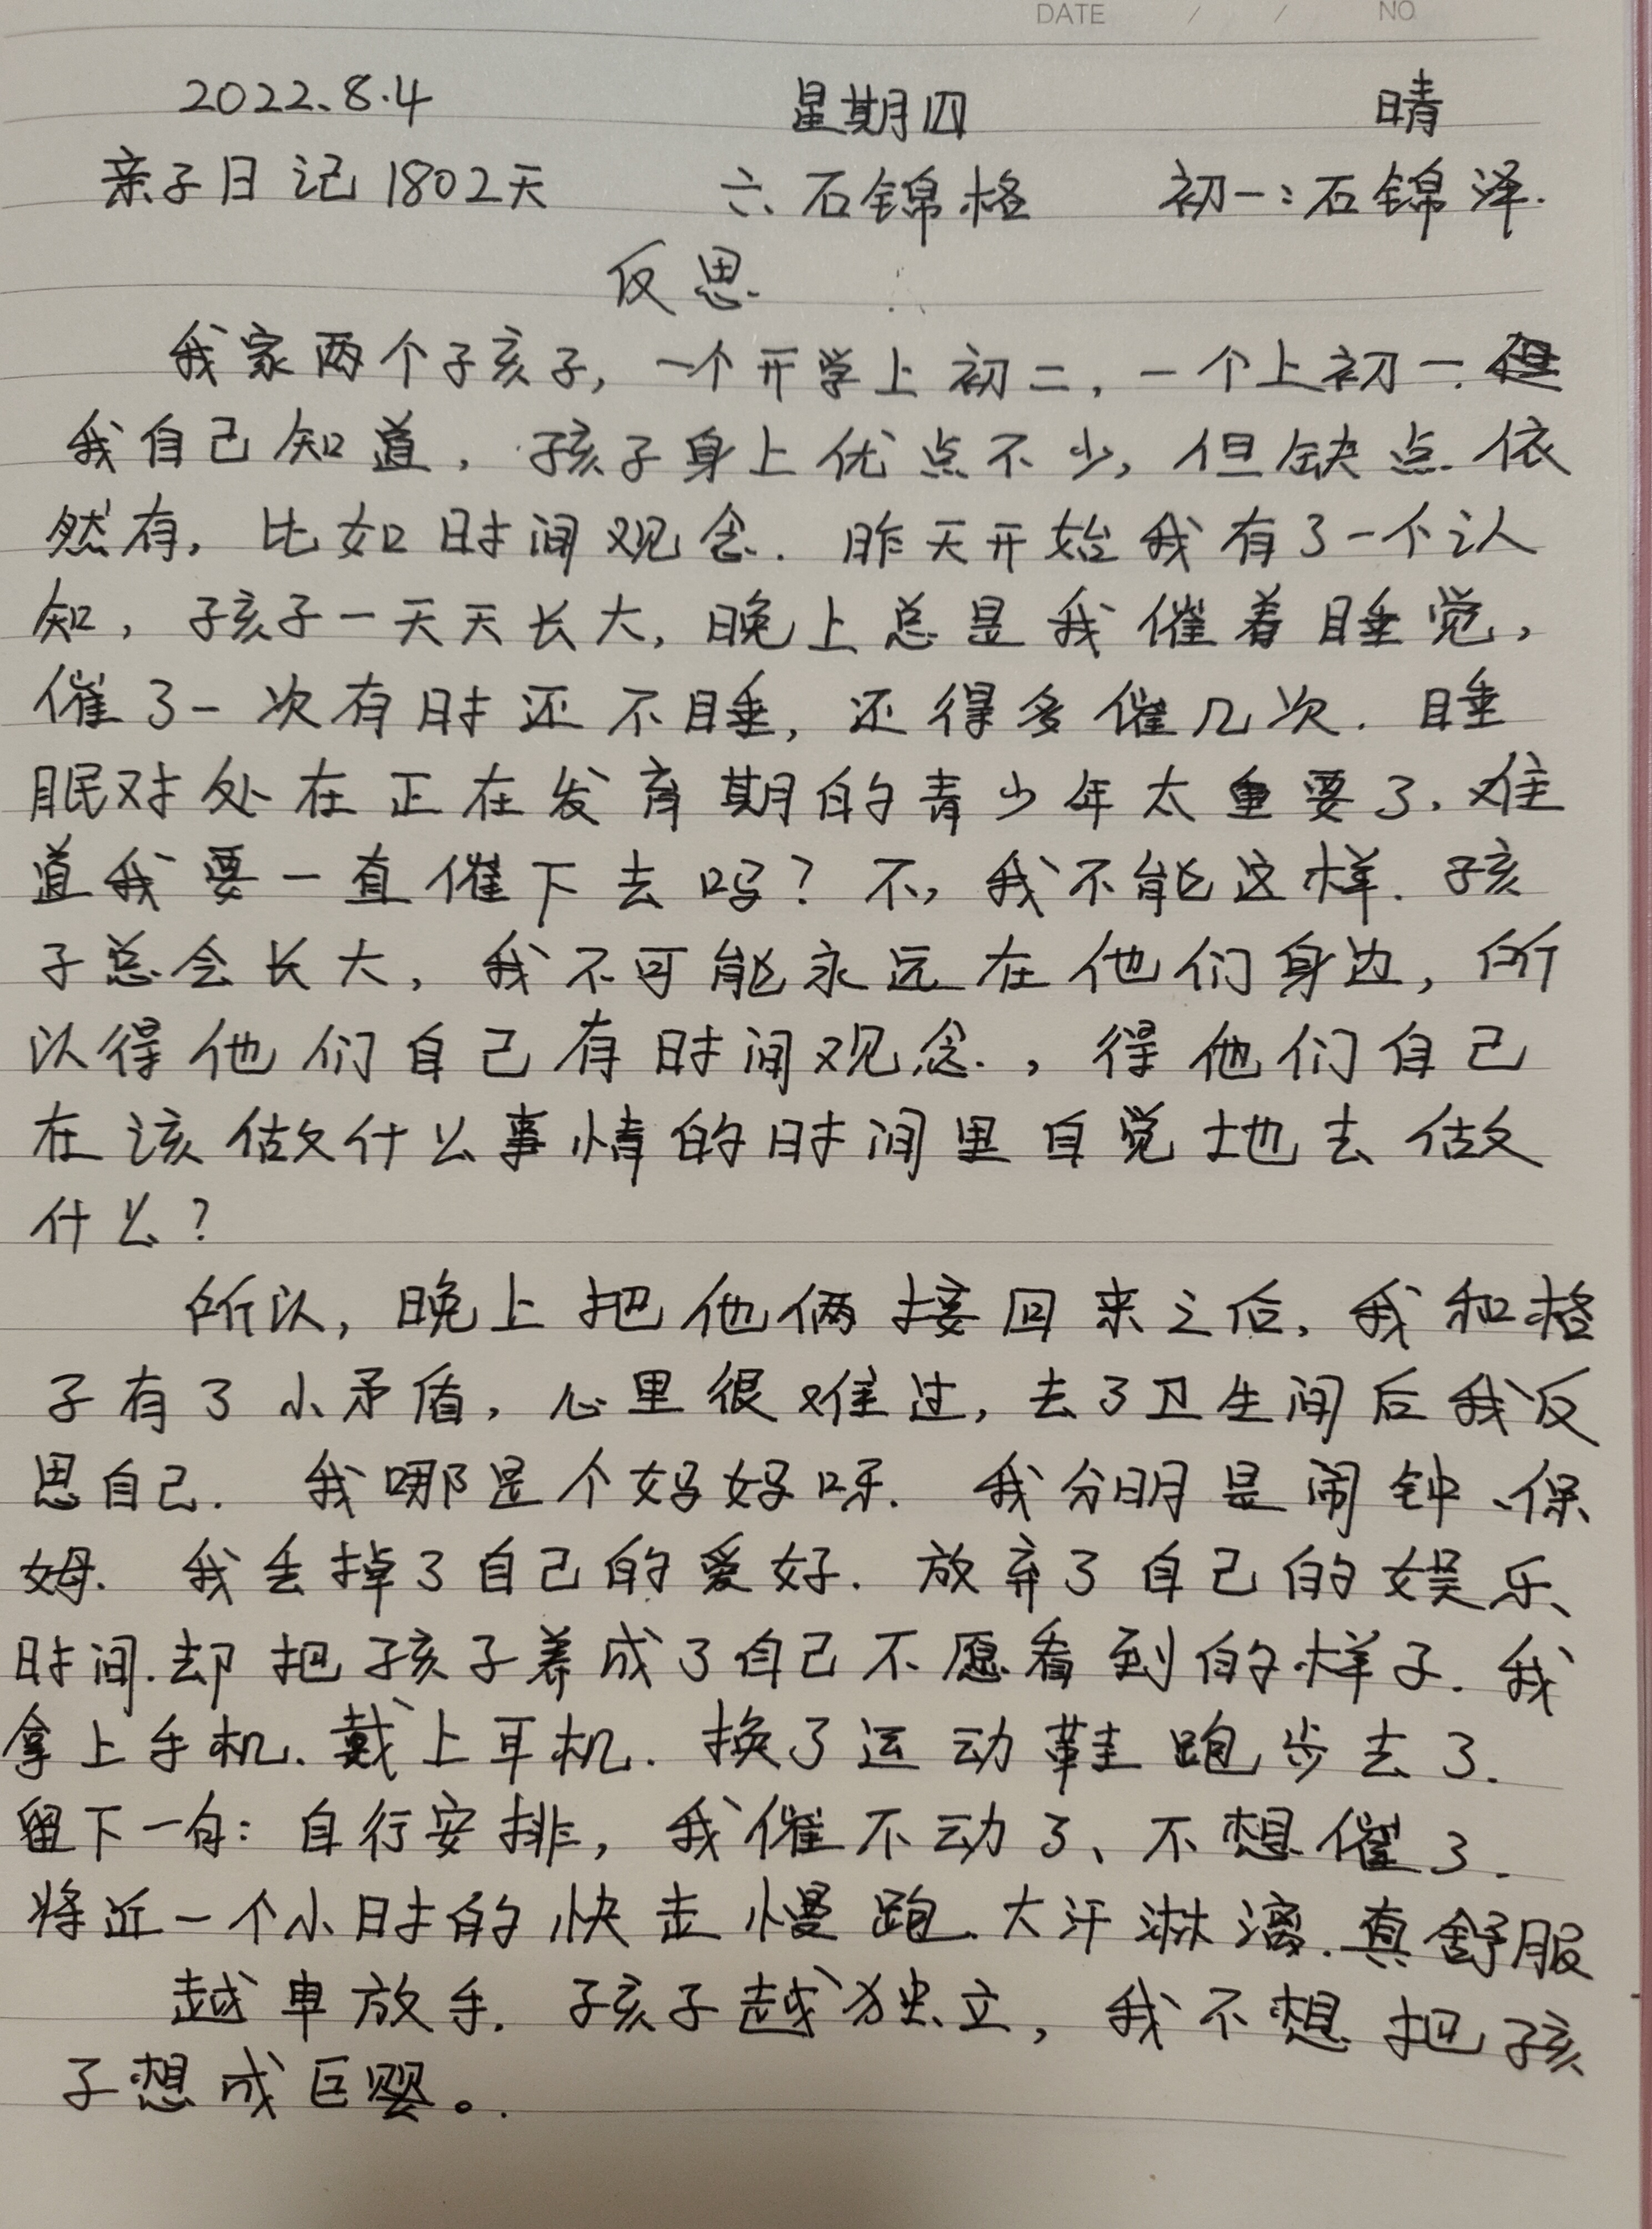 DATE / / NO
2022.8.4 星期四 晴
亲子日记1802天 六、石锦格 初一:石锦泽.
反思.
我家两个子孩子,一个开学上初二,一个上初一.但
我自己知道,孩子身上优点不少,但缺点.依
然有,比如时间观念.昨天开始我有了一个认
知,孩子一天天长大,晚上总是我催着睡觉,
催了一次有时还不睡,还得多催几次.睡
眠对处在正在发育期的青少年太重要了.难
道我要一直催下去吗?不,我不能这样.孩
子总会长大,我不可能永远在他们身边,所
以得他们自己有时间观念.,得他们自己
在该做什么事情的时间里自觉地去做
什么?
所以,晚上把他俩接回来之后,我和格
子有了小矛盾,心里很难过,去了卫生间后我反
思自己.我哪是个妈妈呀.我分明是闹钟、保
姆.我丢掉了自己的爱好.放弃了自己的娱乐、
时间.却把孩子养成了自己不愿看到的样子.我
拿上手机.戴上耳机.换了运动鞋跑步去了.
留下一句:自行安排,我催不动了、不想催了.
将近一个小时的快走慢跑.大汗淋漓.真舒服
越早放手.孩子越独立,我不想把孩
子想成巨婴。.